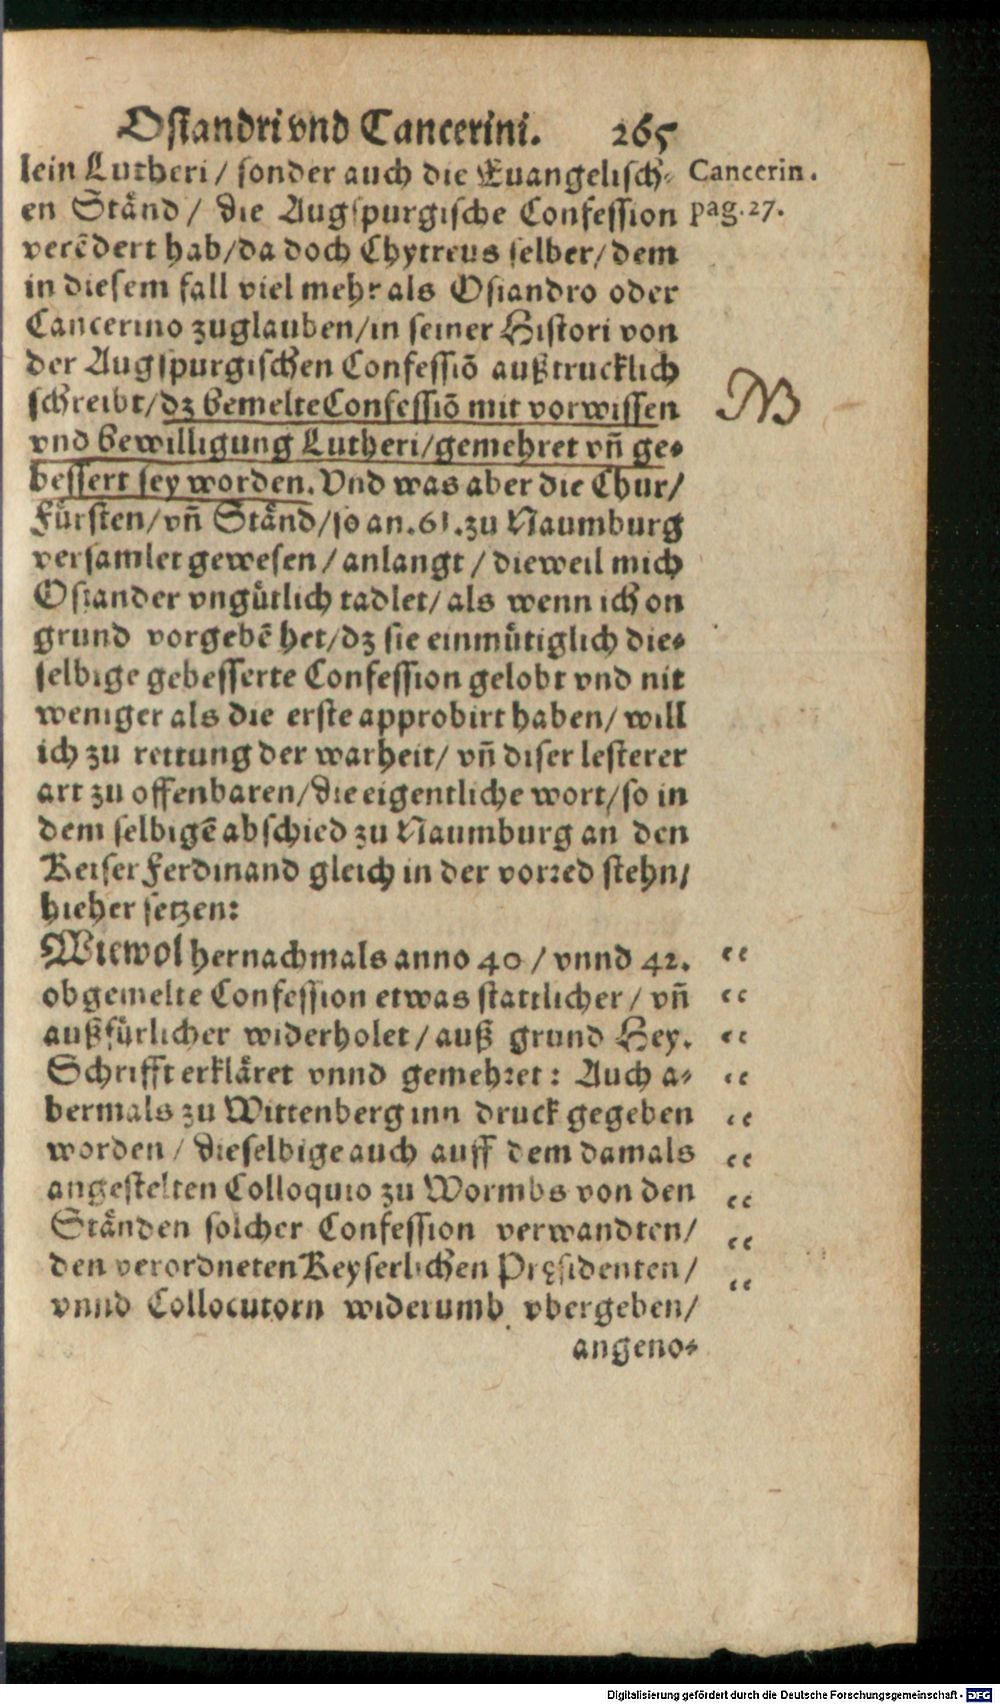 Osiandri vnd Cancerini. 265
lein Lutheri / sonder auch die Euangelisch⸗ Cancerin.
en Ständ / die Augspurgische Confession pag. 27.
verẽdert hab/da doch Chytreus selber/dem
in diesem fall viel mehr als Osiandro oder
Cancerino zuglauben/in seiner Histori von
der Augspurgischen Confessiõ außtrucklich
schreibt/dz bemelte Confessiõ mit vorwissen NB
vnd bewilligung Lutheri/gemehret vñ ge⸗
bessert sey worden. Vnd was aber die Chur/
Fürsten/vñ Ständ/so an. 61. zu Naumburg
versamlet gewesen / anlangt / dieweil mich
Osiander vngütlich tadlet/ als wenn ich on
grund vorgebẽ het/dz sie einmütiglich die⸗
selbige gebesserte Confession gelobt vnd nit
weniger als die erste approbirt haben/ will
ich zu rettung der warheit/ vñ diser lesterer
art zu offenbaren/die eigentliche wort/so in
dem selbigẽ abschied zu Naumburg an den
Keiser Ferdinand gleich in der vorred stehn/
hieher setzen:
Wiewol hernachmals anno 40 / vnnd 42. “
obgemelte Confession etwas stattlicher / vñ “
außfürlicher widerholet / auß grund Hey. “
Schrifft erkläret vnnd gemehret: Auch a⸗ “
bermals zu Wittenberg inn druck gegeben “
worden / dieselbige auch auff dem damals “
angestelten Colloquio zu Wormbs von den “
Ständen solcher Confession verwandten/ “
den verordneten Keyserlichen Pręsidenten / “
vnnd Collocutorn widerumb vbergeben/
angeno⸗
Digitalisierung gefördert durch die Deutsche Forschungsgemeinschaft - DFG